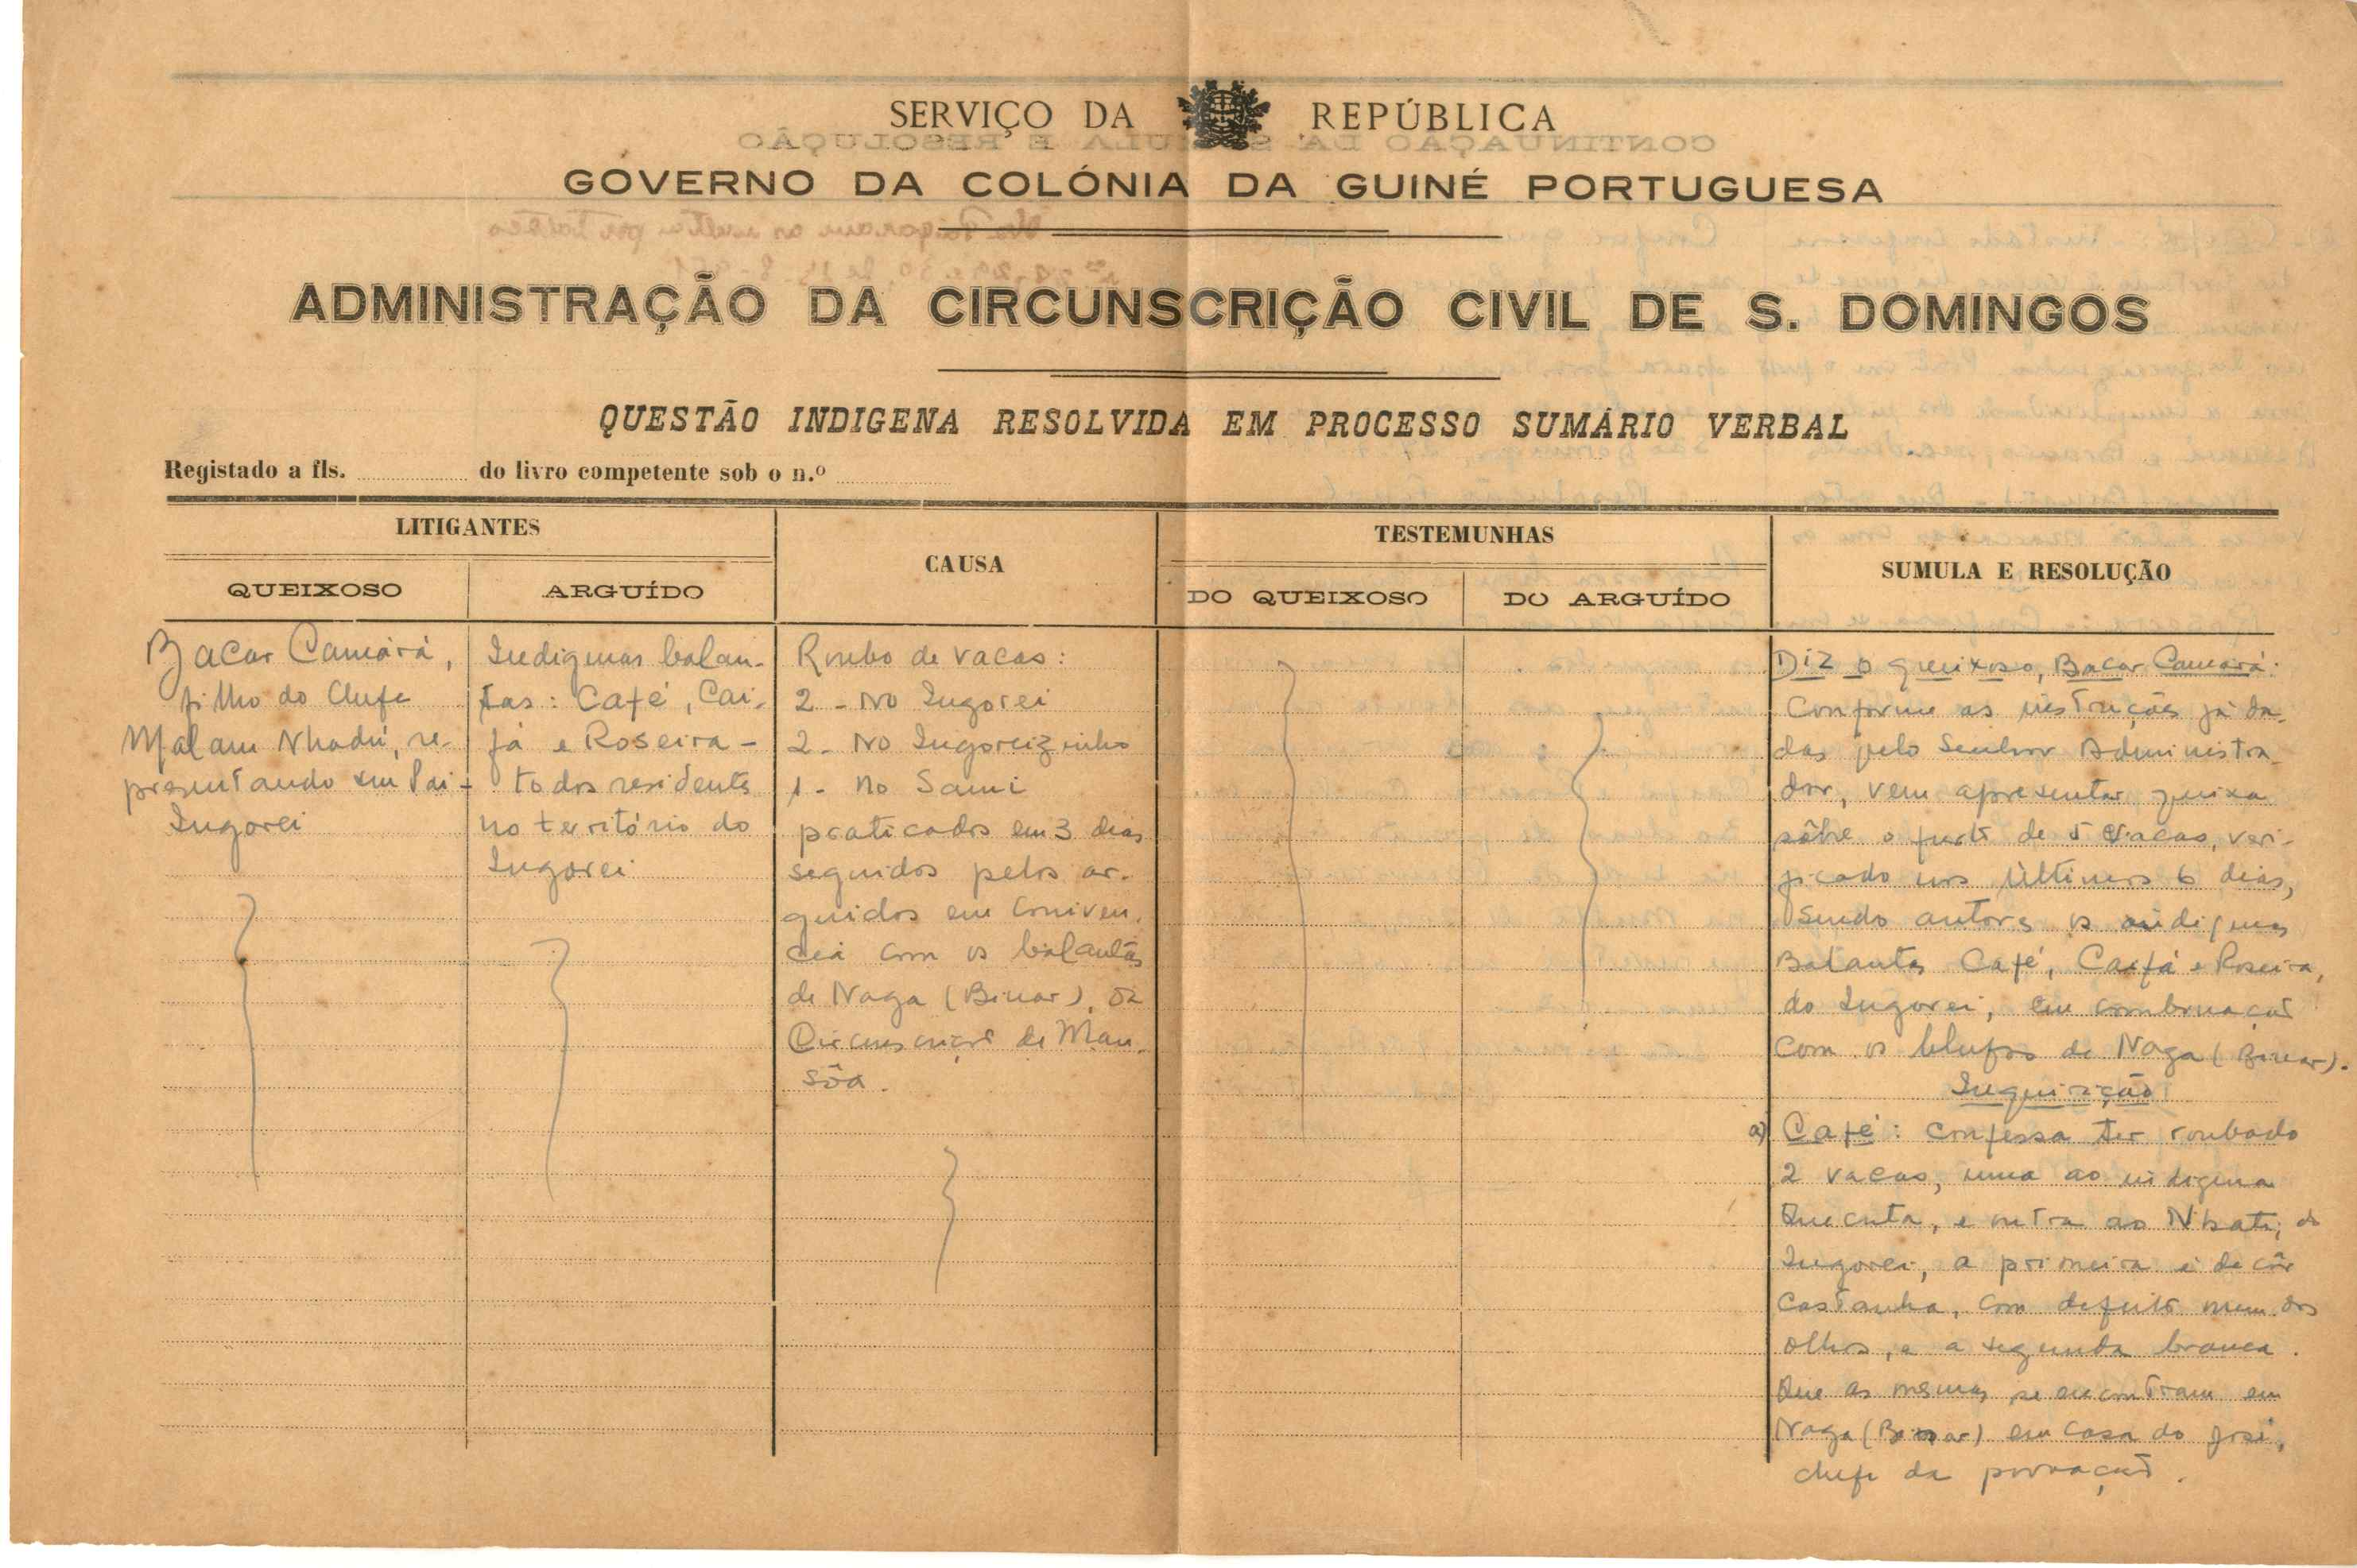 SERVIÇO DA REPÚBLICA
GOVERNO DA COLÓNIA DA GUINÉ PORTUGUESA
ADMINISTRAÇÃO DA CIRCUNSCRIÇÃO CIVIL DE S. DOMINGOS
QUESTÃO INDIGENA RESOLVIDA EM PROCESSO SUMÁRIO VERBAL
Registado a fls. do livro competente sob o n.º
LITIGANTES
QUEIXOSO
ARGUÍDO
CAUSA
TESTEMUNHAS
DO QUEIXOSO
DO ARGUÍDO
SUMULA E RESOLUÇÃO
Bacar Camárá,
filho do Chefe
Malam Nhadú, re-
presentando seu Pai -
Ingorei
Indigenas balan-
tas: Café, Cai-
fá e Roseira -
todos residentes
no território do
Ingorei
Roubo de vacas:
2 - No Ingorei
2 - No Ingoreizinho
1 - No Sami
praticados em 3 dias
seguidos pelos ar-
guidos em coniven-
cia com os balantas
de Naga (Binar), da
Circunscriçã de Man-
sôa.
Diz o queixoso, Bacar Camará:
Conforme as instruções já da-
das pelo Senhor Administra-
dor, vem apresentar queixa
sôbre o furto de 5 vacas, veri-
ficado nos últimos 6 dias,
sendo autores os indigenas
Balantas Café, Caifá e Roseira,
do Ingorei, em combinação
com os blufos de Naga (Binar).
Inquirição
a) Café: confessa ter roubado
2 vacas, uma ao indigena
Quecuta, e outra ao do
Ingorei, a primeira é de côr
castanha, com defeito num dos
olhos, e a segunda branca.
Que as mesmas se encontram em
Naga (Binar) em casa do José,
chefe da povoação.